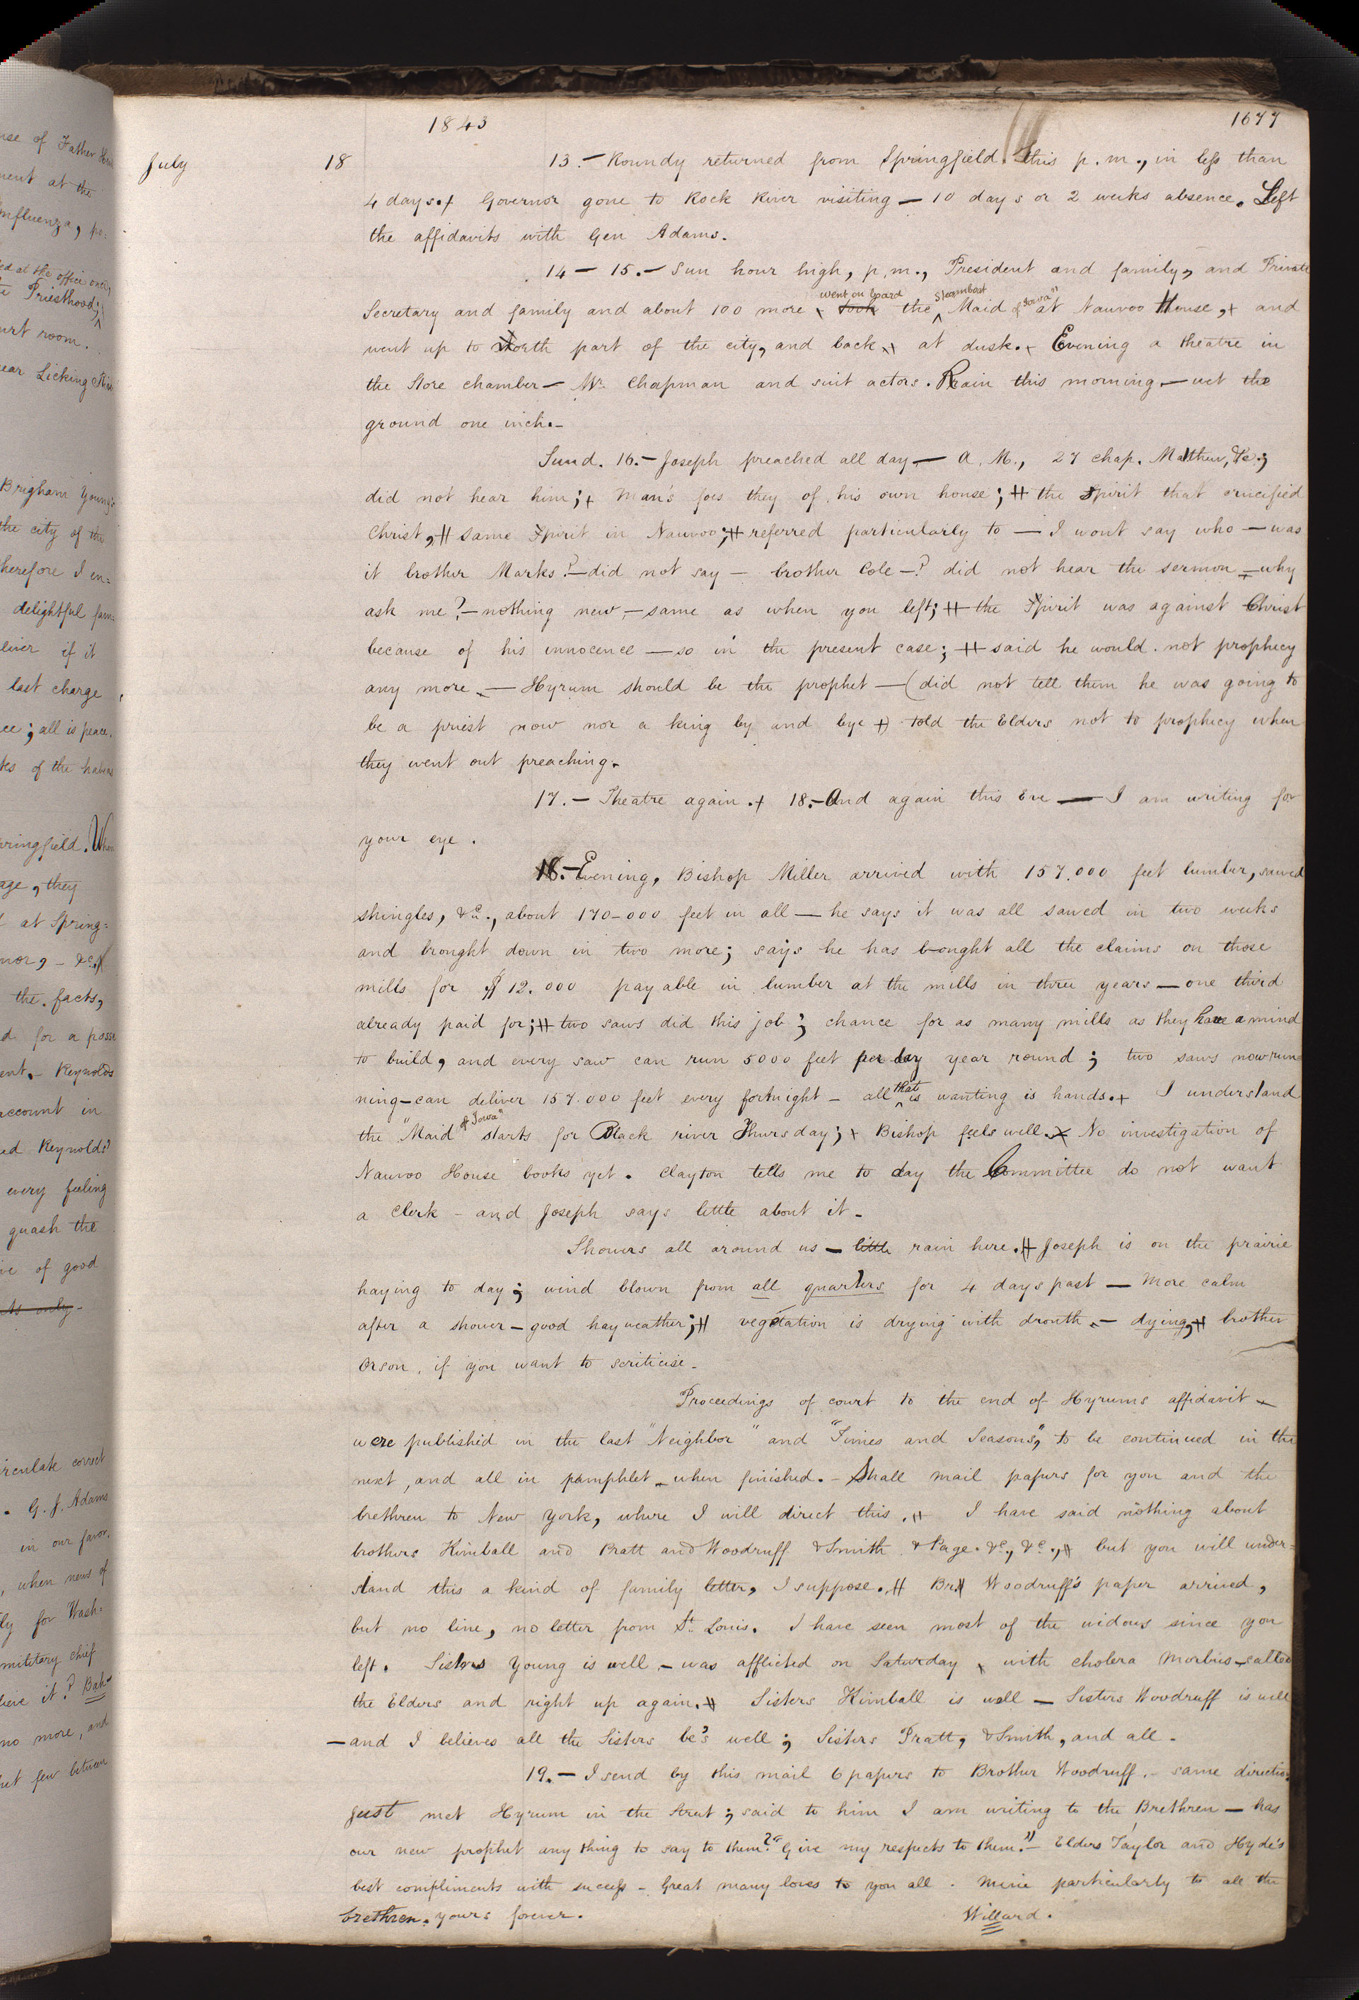 1843
1677
July 18
13.— Roundy returned from Springfield this p.m., in less than
4 days. Governor gone to Rock River visiting — 10 days or 2 weeks absence. Left
the affidavits with Gen Adams.
14 — 15.— Sun hour high, p.m., President and family, and Private
went on board Steamboat of Iowa"
Secretary and family and about 100 more took the Maid at Nauvoo House, and
went up to North part of the city, and back at dusk. Evening a theatre in
the Store chamber — Mr. Chapman and suit actors. Rain this morning — wet the
ground one inch.—
Sund. 16.— Joseph preached all day — A. M., 27 chap. Matthew, &c.;
did not hear him; man's foes they of his own house; the spirit that crucified
Christ, same spirit in Nauvoo; referred particularly to — I wont say who — was
it brother Marks? — did not say — brother Cole —? did not hear the sermon — why
ask me? — nothing new — same as when you left; the Spirit was against Christ
because of his innocence — so in the present case; said he would not prophecy
any more — Hyrum should be the prophet — (did not tell them he was going to
be a priest now nor a king by and bye) told the Elders not to prophecy when
they went out preaching.
17.— Theatre again. 18.— And again this Eve — I am writing for
your eye.
18.— Evening, Bishop Miller arrived with 157.000 feet lumber, sawed
shingles, &c., about 170-000 feet in all — he says it was all sawed in two weeks
and brought down in two more; says he has bought all the claims on those
mills for $12.000 payable in lumber at the mills in three years — one third
already paid for; two saws did this job; chance for as many mills as they have a mind
to build, and every saw can run 5000 feet per day year round; two saws now run
ning — can deliver 157.000 feet every fortnight — all that is wanting is hands. I understand
the "Maid of Iowa" starts for Black river Thursday; Bishop feels well. No investigation of
Nauvoo House books yet. Clayton tells me to day the Committee do not want
a clerk — and Joseph says little about it —
Showers all around us — little rain here. Joseph is on the prairie
haying to day; wind blown from all quarters for 4 days past — more calm
after a shower — good hay weather; vegetation is drying with drouth — dying, brother
Orson, if you want to scriticise —
Proceedings of court to the end of Hyrums affidavit
were published in the last "Neighbor" and "Times and Seasons," to be continued in the
next, and all in pamphlet when finished. — Shall mail papers for you and the
brethren to New York, where I will direct this. I have said nothing about
brothers Kimball and Pratt and Woodruff & Smith & Page. &c., &c., but you will under=
stand this a kind of family letter, I suppose. Br Woodruff's paper arrived,
but no line, no letter from St. Louis. I have seen most of the widows since you
left. Sisters Young is well — was afflicted on Saturday with cholera morbus — called
the Elders and right up again. Sisters Kimball is well — Sisters Woodruff is well
— and I believes all the Sisters be's well; Sisters Pratt, & Smith, and all —
19.— I send by this mail 6 papers to Brother Woodruff. — same direction
just met Hyrum in the street; said to him I am writing to the Brethren — has
our new prophet any thing to say to them? "Give my respects to them." — Elders Taylor and Hyde's
best compliments with success — Great many loves to you all. Mine particularly to all the
brethren. yours forever.
Willard.